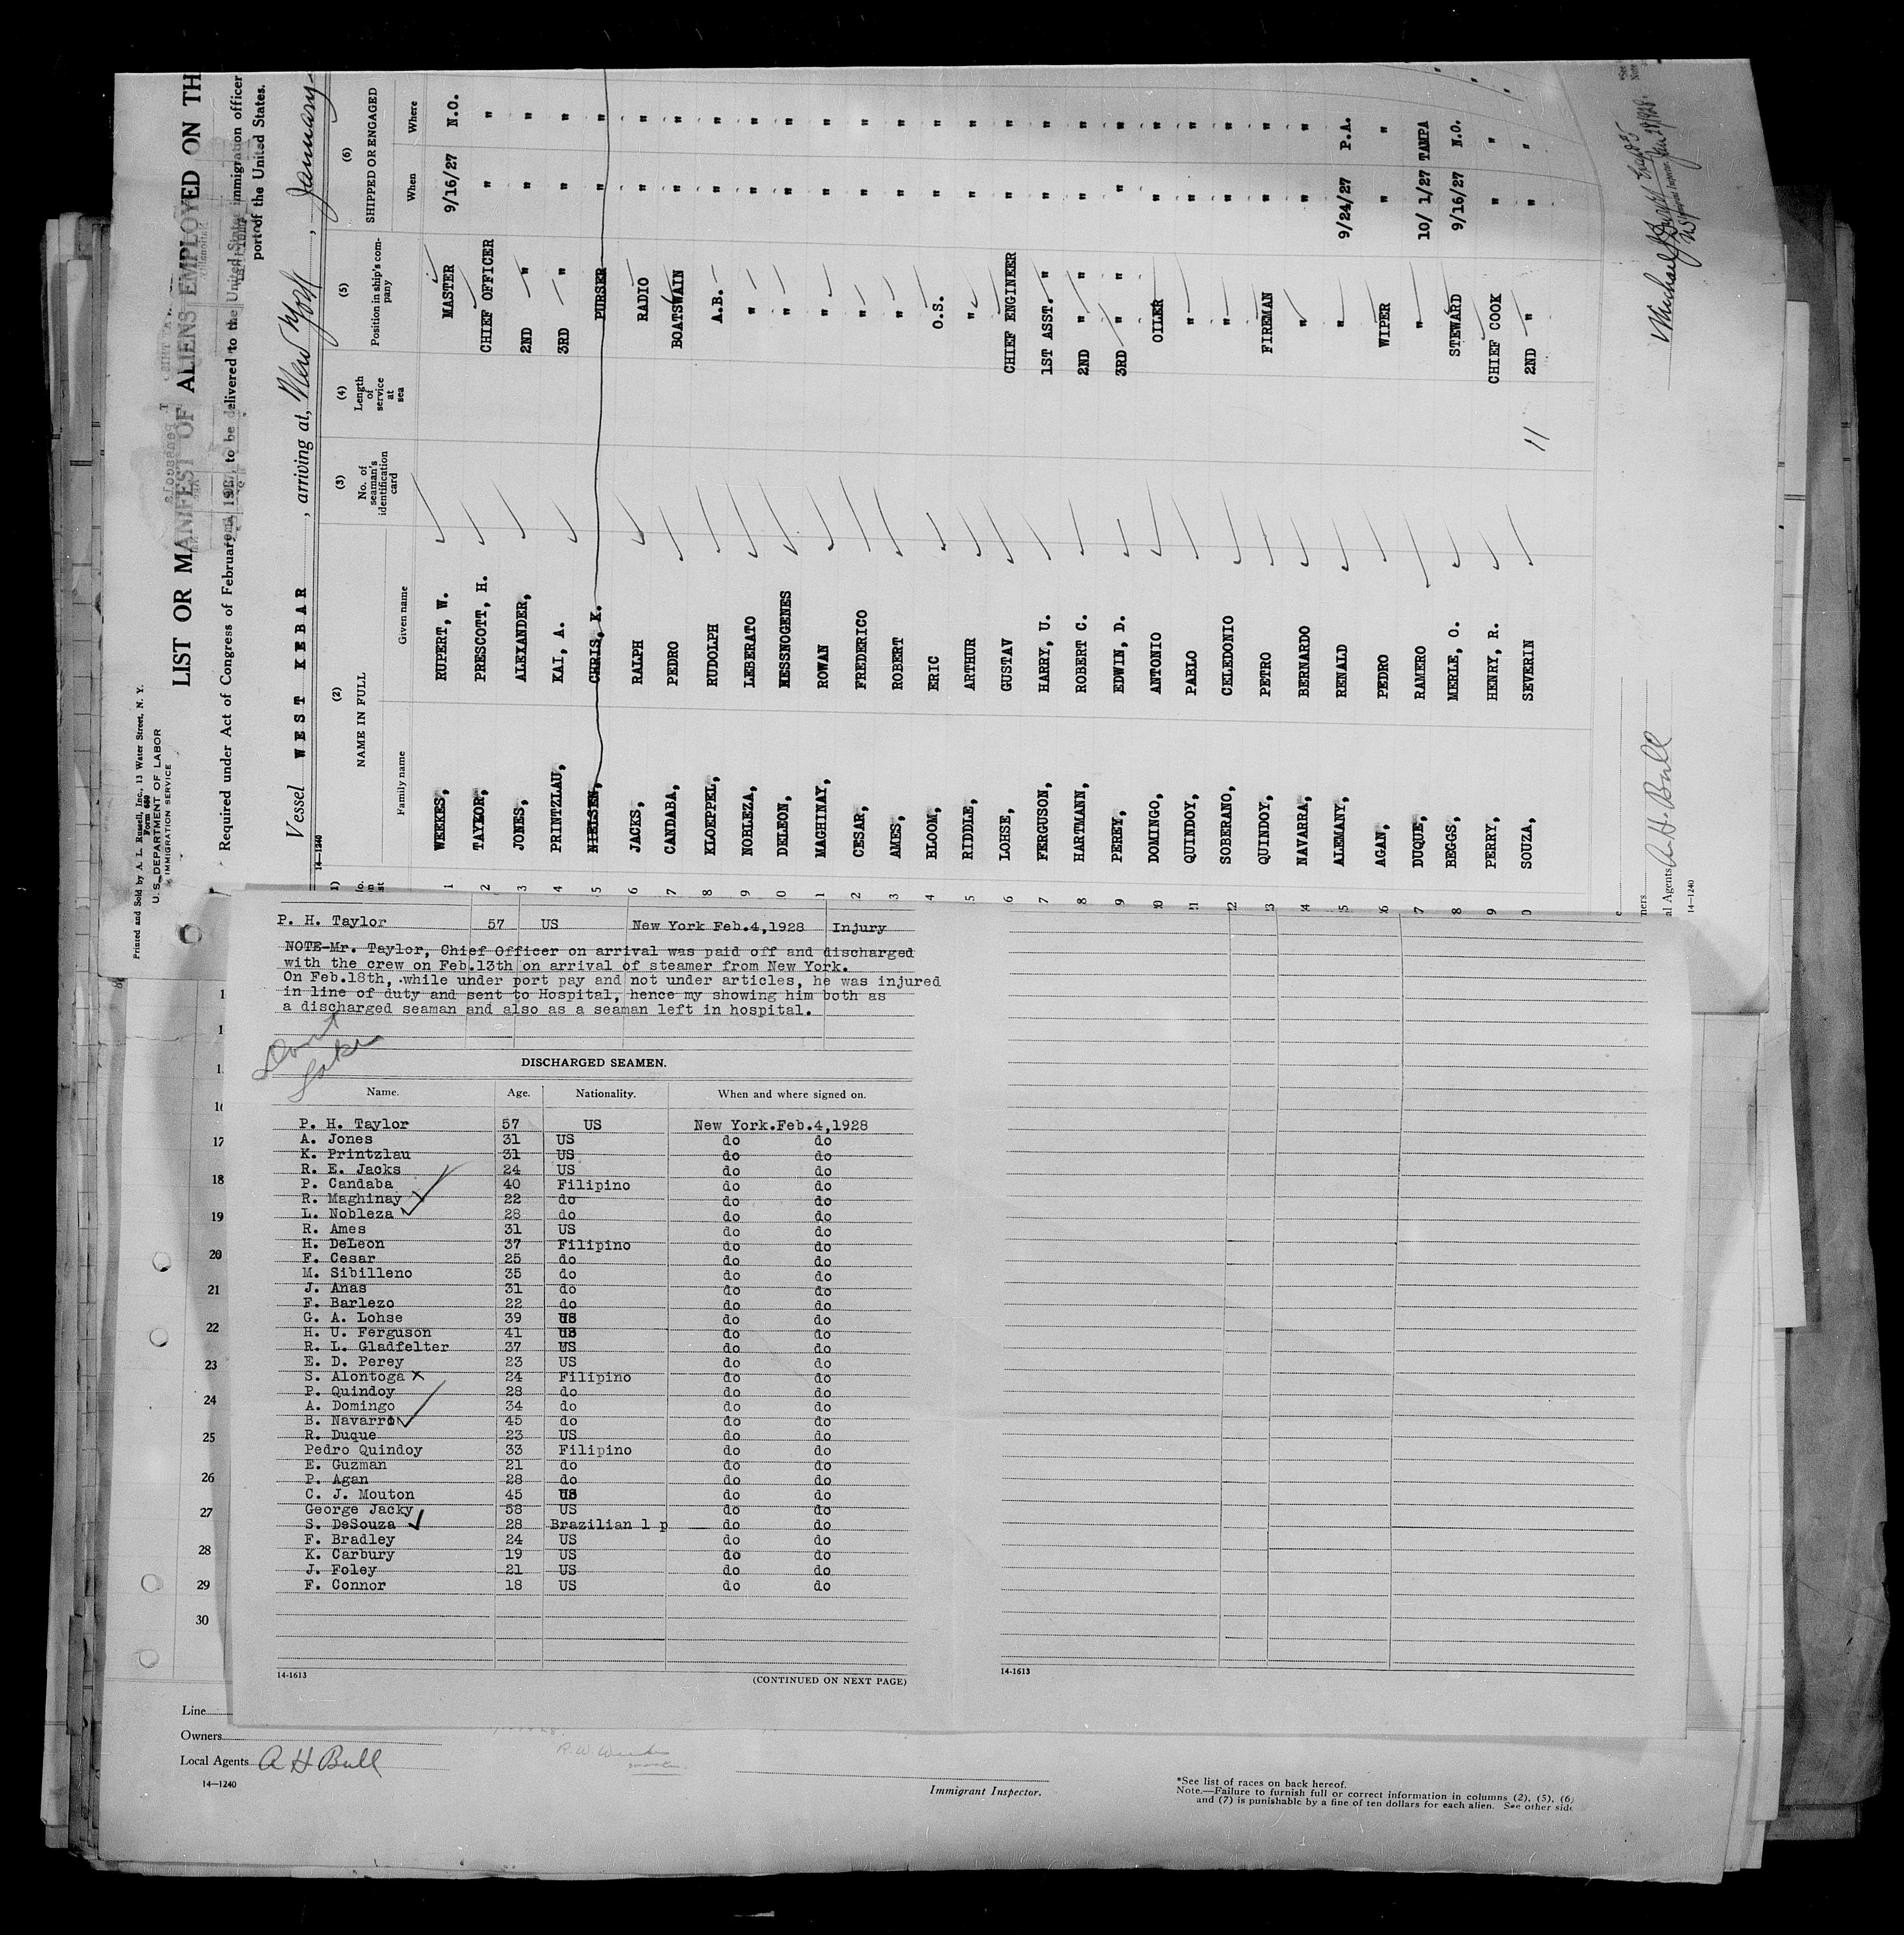 Printed and Sold by A. L. Russell, Inc., 13 Water Street, N. Y.
Form 680
U. S. DEPARTMENT OF LABOR
IMMIGRATION SERVICE
LIST OR MANIFEST OF ALIENS EMPLOYED ON TH
Required under Act of Congress of February to be delivered to the United States immigration officer
port of the United States.
Vessel WEST KEBAR, arriving at, New York, January
14—1240
(2) (3) (4) (5) (6)
NAME IN FULL No. of seaman's identification card Length of service at sea Position in ship's company SHIPPED OR ENGAGED
Family name Given name When Where
1 WEEKES, RUPERT, W. MASTER 9/16/27 N.O.
2 TAYLOR, PRESCOTT, H. CHIEF OFFICER " "
3 JONES, ALEXANDER, 2ND " " "
4 PRINTZLAU, KAI, A. 3RD " " "
5 NIELSEN, CHRIS, K. PURSER " "
6 JACKS, RALPH RADIO " "
7 CANDABA, PEDRO BOATSWAIN " "
8 KLOEPPEL, RUDOLPH A.B. " "
9 NOBLEZA, LEBERATO " " "
0 DELEON, HESSNOGENES " " "
1 MAGHINAY, ROWAN " " "
2 CESAR, FREDERICO " " "
3 AMES, ROBERT " " "
4 BLOOM, ERIC O.S. " "
5 RIDDLE, ARTHUR " " "
6 LOHSE, GUSTAV CHIEF ENGINEER " "
7 FERGUSON, HARRY, U. 1ST ASST. " " "
8 HARTMANN, ROBERT C. 2ND " " " "
9 PEREY, EDWIN, D. 3RD " " " "
20 DOMINGO, ANTONIO OILER " "
21 QUINDOY, PABLO " " "
22 SOBERANO, CELEDONIO " " "
23 QUINDOY, PETRO FIREMAN " "
24 NAVARRA, BERNARDO " " "
5 ALEMANY, RENALD " 9/24/27 P.A.
26 AGAN, PEDRO WIPER " "
7 DUQUE, RAMERO " 10/ 1/27 TAMPA
8 BEGGS, MERLE, O. STEWARD 9/16/27 N.O.
9 PERRY, HENRY, R. CHIEF COOK " "
0 SOUZA, SEVERIN 2ND " " "
11
al Agents A. H. Bull
14—1240
P. H. Taylor 57 US New York Feb.4,1928 Injury
NOTE-Mr. Taylor, Chief Officer on arrival was paid off and discharged
with the crew on Feb.13th on arrival of steamer from New York.
On Feb.18th, while under port pay and not under articles, he was injured
in line of duty and sent to Hospital, hence my showing him both as
a discharged seaman and also as a seaman left in hospital.
DISCHARGED SEAMEN.
Name. Age. Nationality. When and where signed on.
P. H. Taylor 57 US New York.Feb.4,1928
A. Jones 31 US do do
K. Printzlau 31 US do do
R. E. Jacks 24 US do do
P. Candaba 40 Filipino do do
R. Maghinay 22 do do do
L. Nobleza 28 do do do
R. Ames 31 US do do
H. DeLeon 37 Filipino do do
F. Cesar 25 do do do
M. Sibilleno 35 do do do
J. Anas 31 do do do
F. Barlezo 22 do do do
G. A. Lohse 39 US do do
H. U. Ferguson 41 US do do
R. L. Gladfelter 37 US do do
E. D. Perey 23 US do do
S. Alontoga x 24 Filipino do do
P. Quindoy 28 do do do
A. Domingo 34 do do do
B. Navarro 45 do do do
R. Duque 23 US do do
Pedro Quindoy 33 Filipino do do
E. Guzman 21 do do do
P. Agan 28 do do do
C. J. Mouton 45 US do do
George Jacky 58 US do do
S. DeSouza 28 Brazilian l p do do
F. Bradley 24 US do do
K. Carbury 19 US do do
J. Foley 21 US do do
F. Connor 18 US do do
14-1613
(CONTINUED ON NEXT PAGE)
14-1613
16
17
18
19
20
21
22
23
24
25
26
27
28
29
30
Line
Owners
Local Agents A H Bull
14—1240
Immigrant Inspector.
*See list of races on back hereof.
Note.—Failure to furnish full or correct information in columns (2), (5), (6)
and (7) is punishable by a fine of ten dollars for each alien. See other side